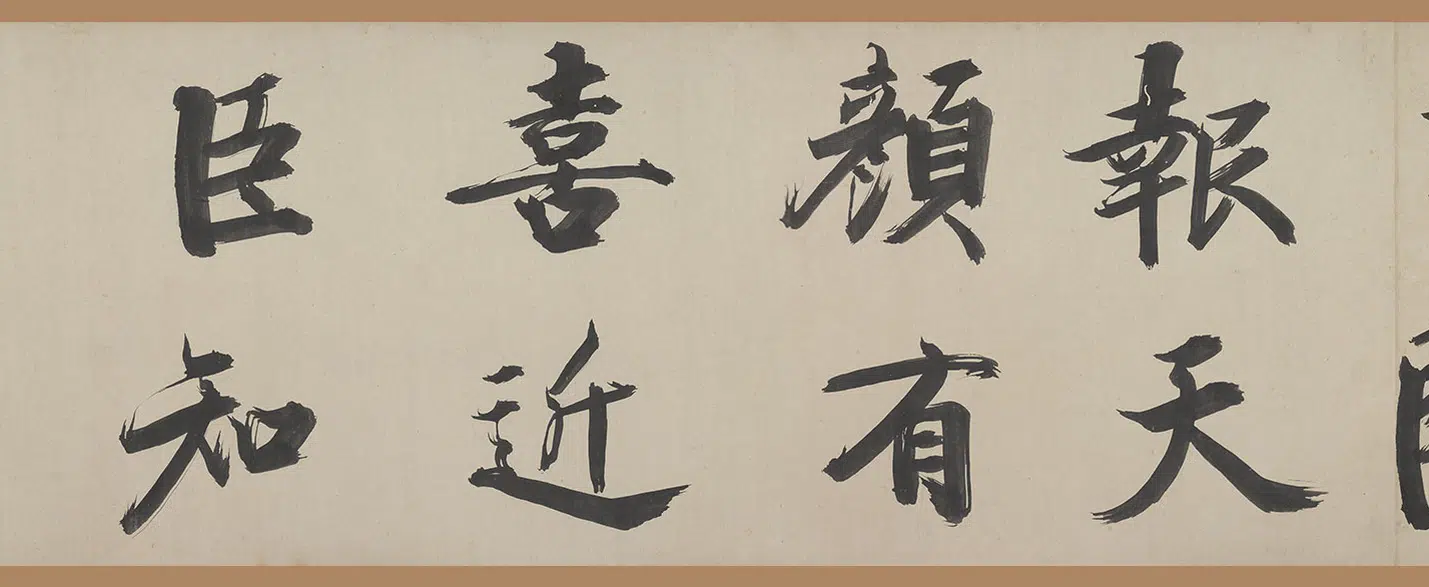 報天
顏有
喜近
臣知